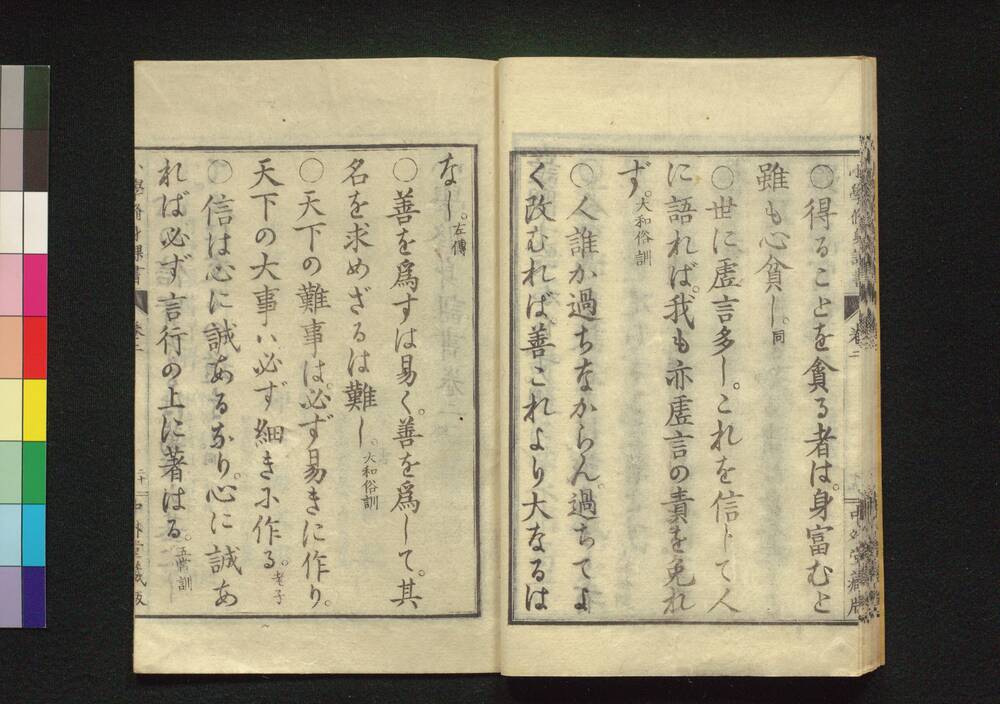 〇得ることを貪る者は。身富むと
雖も心貪し。同
〇世に虚言多し。これを信じて人
に語れば。我も亦虚言の責を免れ
ず。大和俗訓
〇人誰か過ちなからん。過ちてよ
く改むれば善これより大なるは
なし。左傳
〇善を爲すは易く。善を爲して。其
名を求めざるは難し。大和俗訓
〇天下の難事は。必ず易きに作り。
天下の大事ハ必ず細きに作る。老子
〇信は心に誠あるなり。心に誠あ
れば必ず言行の上に著はる。五常訓
卷二